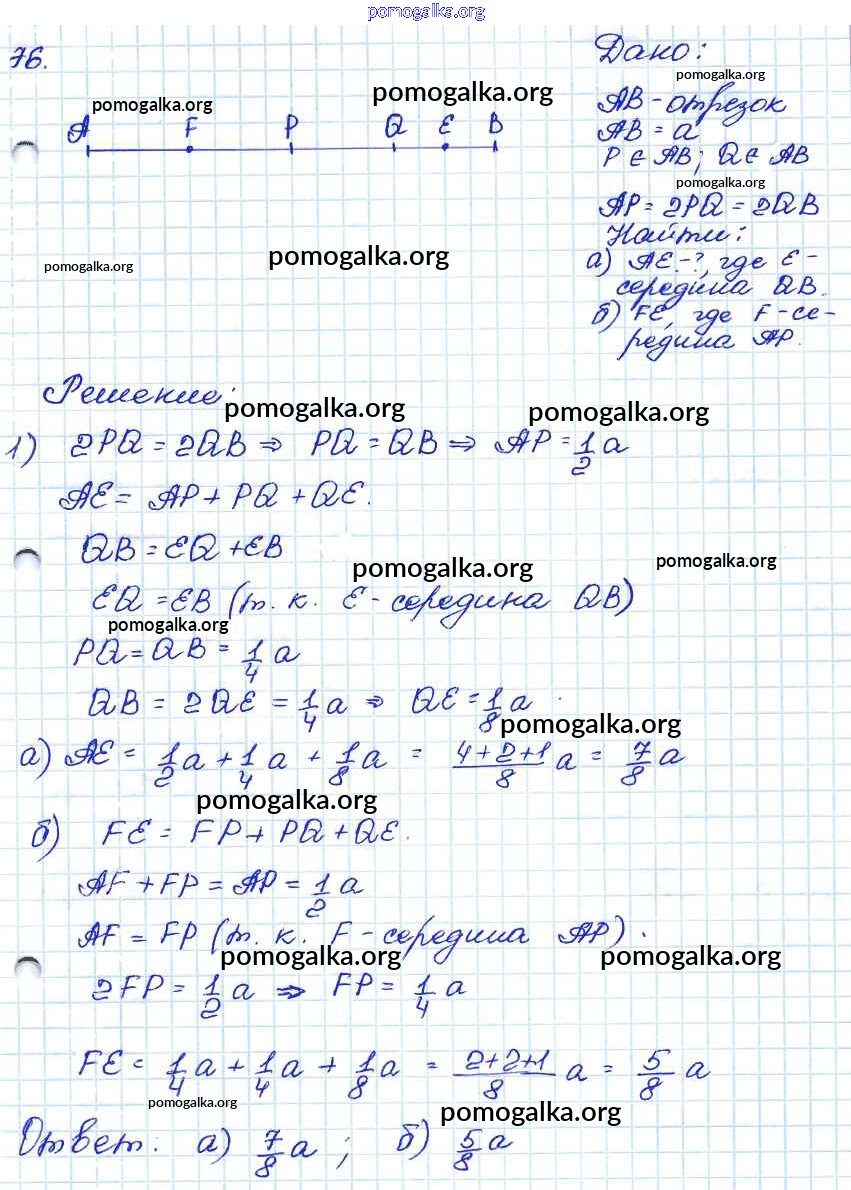 pomogalka.org
76.
Дано:
pomogalka.org
pomogalka.org
pomogalka.org
AB - отрезок
A F P Q E B
AB = a
P ∈ AB; Q ∈ AB
pomogalka.org
AP = 2PQ = 2QB
Найти:
pomogalka.org
pomogalka.org
а) AE - ?, где E -
середина QB.
б) FE, где F - се-
редина AP.
Решение:
pomogalka.org
pomogalka.org
1) 2PQ = 2QB ⇒ PQ = QB ⇒ AP = 1/2 a
AE = AP + PQ + QE.
QB = EQ + EB
pomogalka.org
pomogalka.org
EQ = EB (т. к. E - середина QB)
pomogalka.org
PQ = QB = 1/4 a
QB = 2QE = 1/4 a ⇒ QE = 1/8 a
pomogalka.org
а) AE = 1/2 a + 1/4 a + 1/8 a = 4+2+1/8 a = 7/8 a
pomogalka.org
б) FE = FP + PQ + QE.
AF + FP = AP = 1/2 a
AF = FP (т. к. F - середина AP).
pomogalka.org
pomogalka.org
2FP = 1/2 a ⇒ FP = 1/4 a
FE = 1/4 a + 1/4 a + 1/8 a = 2+2+1/8 a = 5/8 a
pomogalka.org
pomogalka.org
Ответ: а) 7/8 a; б) 5/8 a